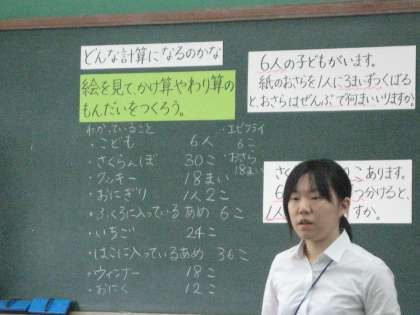 どんな計算になるのかな
絵を見て、かけ算やわり算の
もんだいをつくろう。
わかっていること
・こども 6人
・さくらんぼ 30こ
・クッキー 18まい
・おにぎり 1人2こ
・ふくろに入っているあめ 6こ
・いちご 24こ
・はこに入っているあめ 36こ
・ウィンナー 18こ
・おにく 12こ
・エビフライ
6こ
・おさら
18まい
6人の子どもがいます。
紙のおさらを1人に3まいずつくばる
と、おさらはぜんぶで何まいいりますか。
さく こあります。
6 つ分けると、
1人 すか。